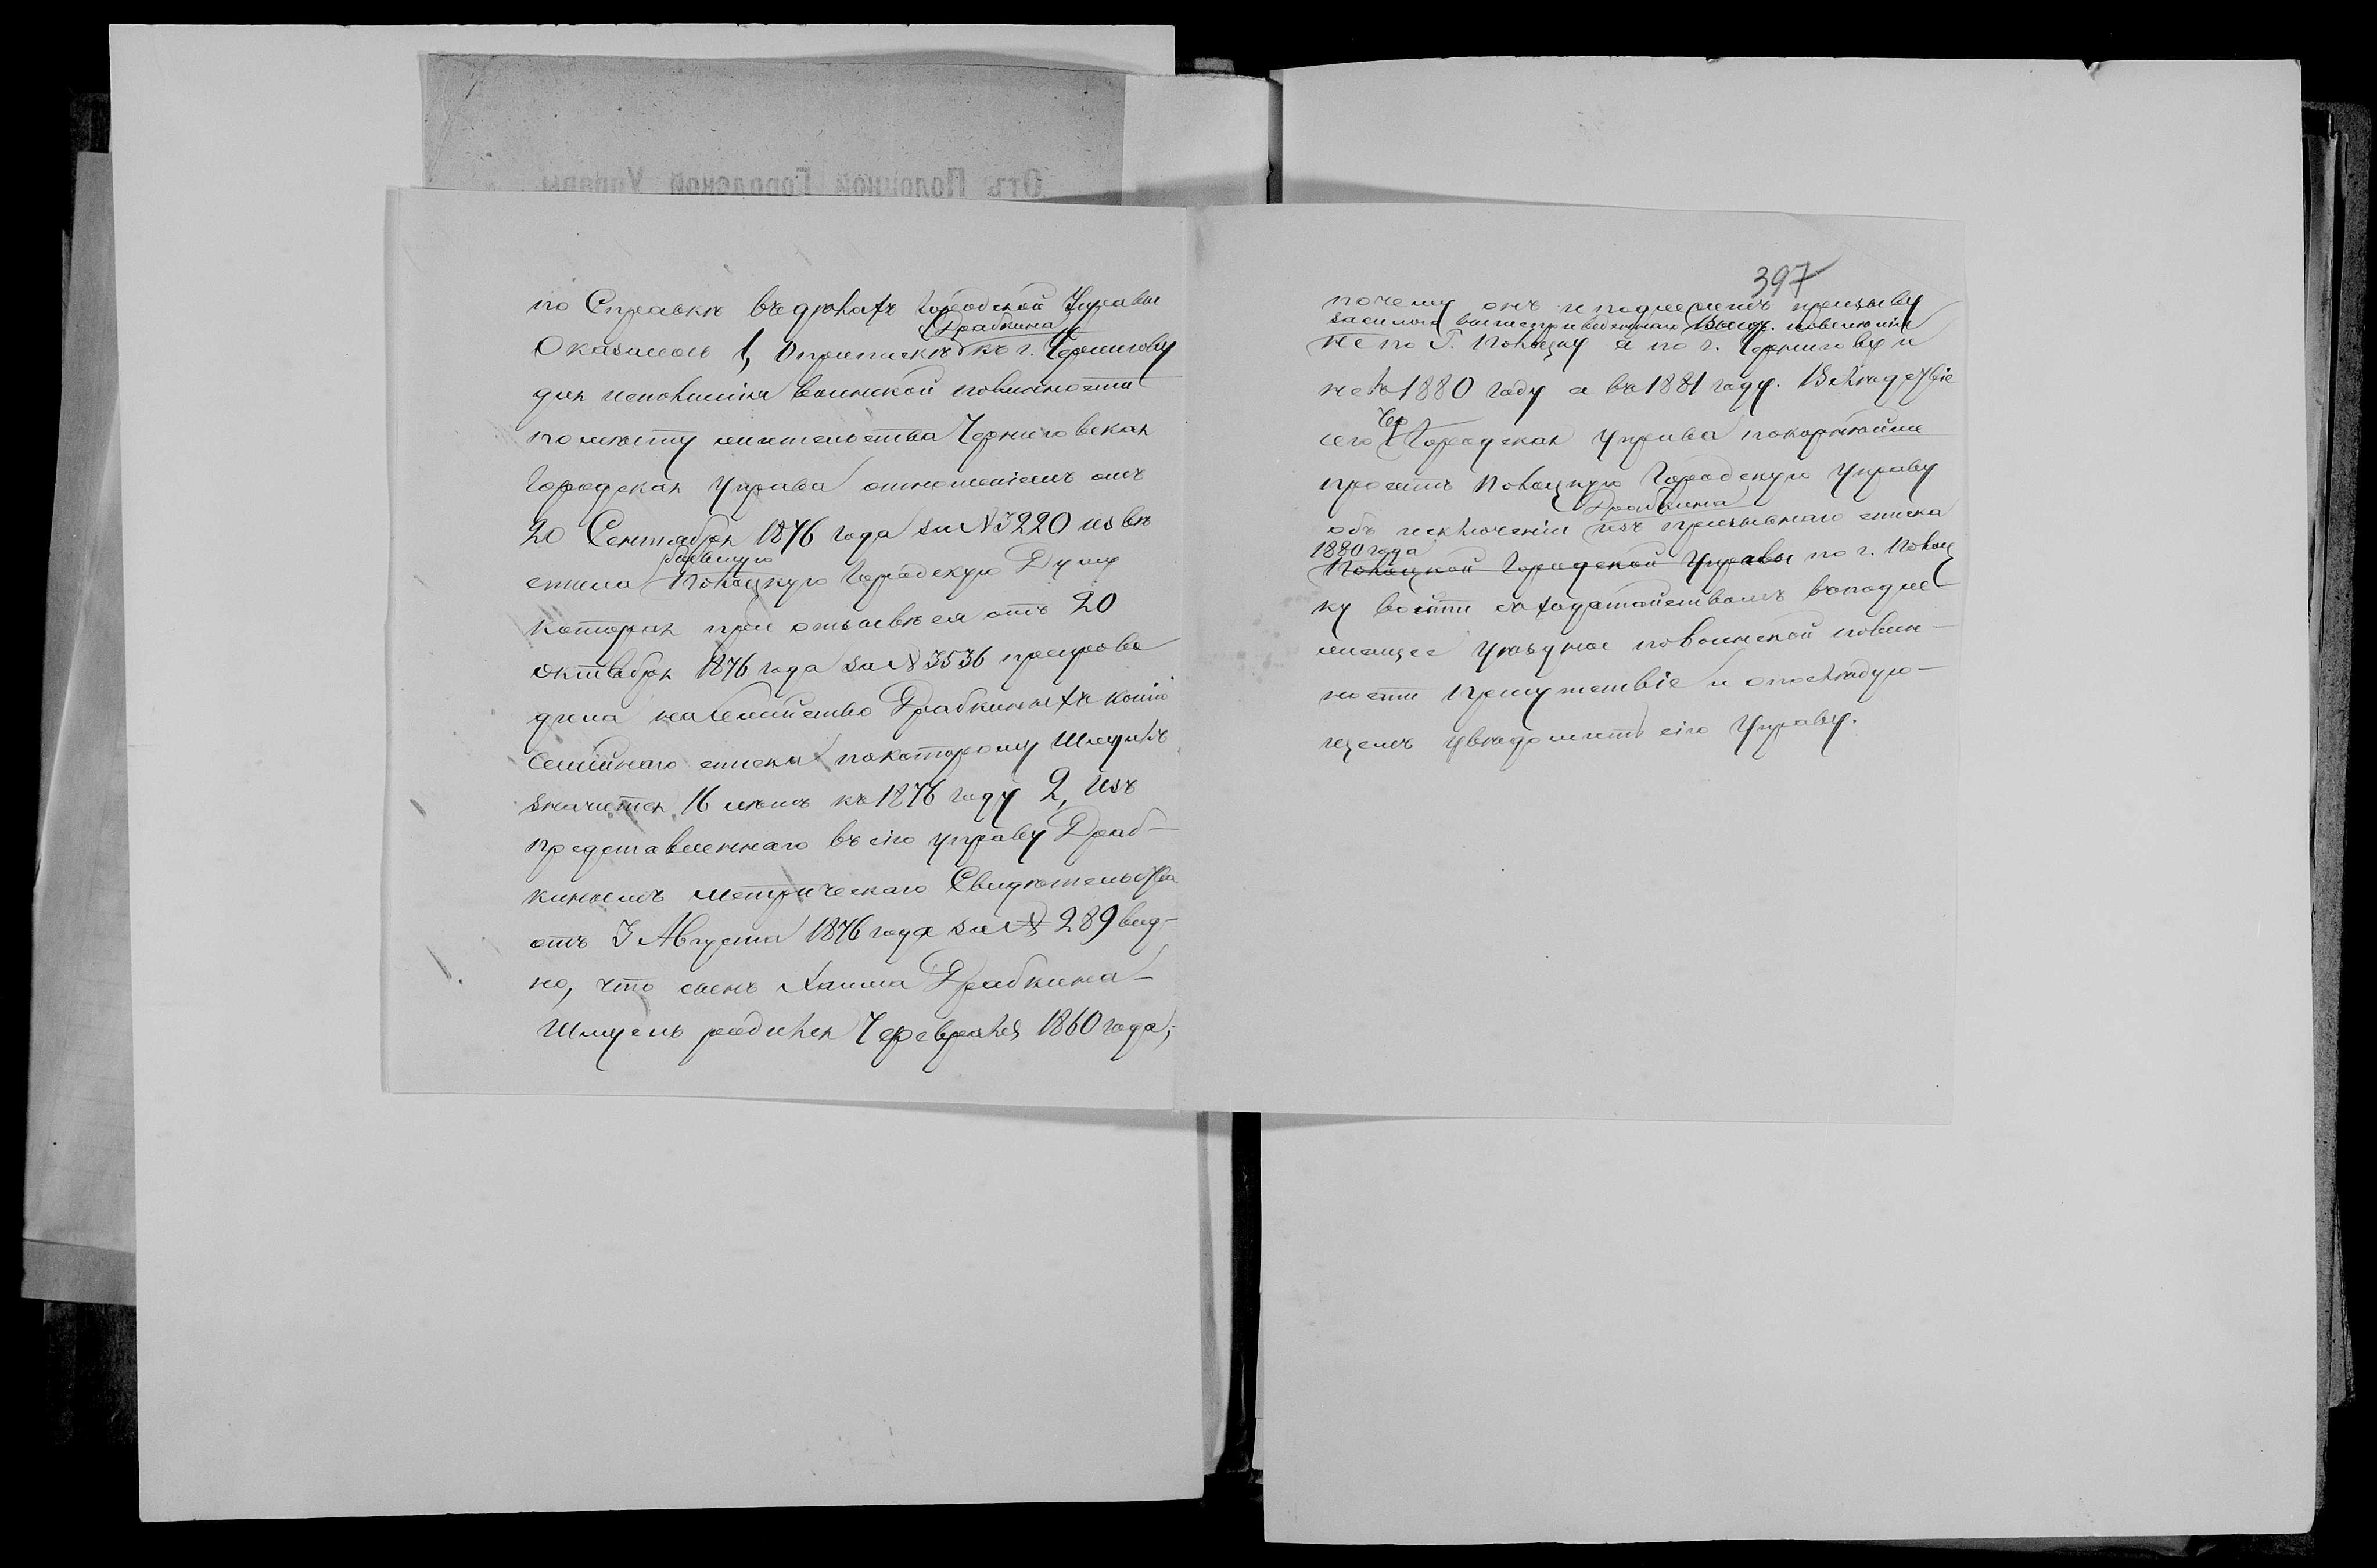 Отъ Полоцкой Городской Управы
по Справкѣ въ дѣлахъ Городской Управы
Драбкина
Оказалось 1, О припискѣ къ г. Чернигову
для исполненія воинской повинности
по мѣсту жительства Черниговская
Городская Управа отношеніемъ отъ
20 Сентября 1876 года за № 3220 извѣ
бывшую
стила Полоцкую Городскую Думу
которая при отзывѣ ея отъ 20
Октября 1876 года за № 3536 препрово
дила на Семейство Драбкиныхъ копію
Семейнаго списка по которому Шмуилъ
значится 16 лѣтъ къ 1876 году 2, Изъ
представленнаго въ сію управу Драб-
кинымъ Метрическаго Свидѣтельства
отъ 3 Августа 1876 года за № 289 вид-
но, что сынъ Хаима Драбкина-
Шмуель родился Февраля 1860 года,
397
почему онъ и подлежитъ призыву
за силою вышеприведеннаго Высоч. повеленія
не по Г. Полоцку а по г. Чернигову и
не въ 1880 году а въ 1881 году. Вслѣдствіе
Чер
сего Городская Управа покорнѣйше
проситъ Полоцкую Городскую Управу
Драбкина
объ исключеніи изъ призывнаго списка
1880 года
Полоцкой Городской Управы по г. Полоц
ку войти съ ходатайствомъ въ подле
жащее Уѣздное по воинской повин-
ности Присутствіе и о послѣдую-
щемъ увѣдомить сію Управу.